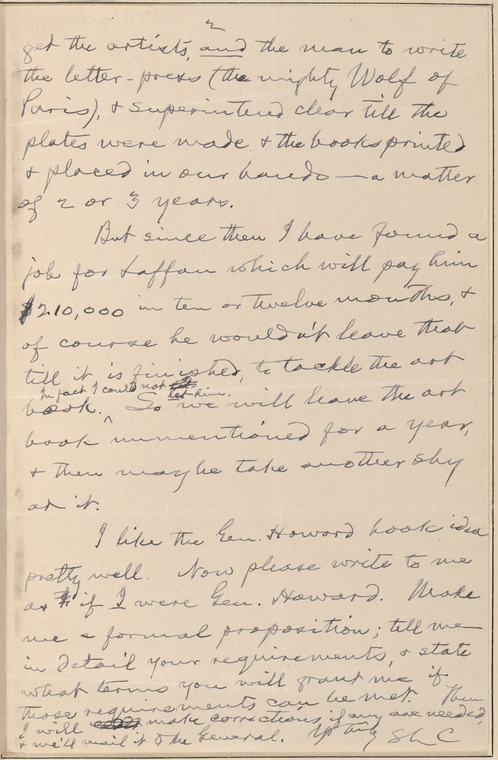 2
get the artists, and the man to write
the letter-press (the mighty Wolf of
Paris), & superintend clear till the
plates were made & the books printed
& placed in our hands — a matter
of 2 or 3 years.
But since then I have found a
job for Laffan which will pay him
$210,000 in ten or twelve months, &
of course he wouldn't leave that
till it is finished, to tackle the art
In fact I could not let him.
book. So we will leave the art
book unmentioned for a year,
& then maybe take another shy
at it.
I like the Gen. Howard book idea
pretty well. Now please write to me
as if I were Gen. Howard. Make
me a formal proposition; tell me
in detail your requirements, & state
what terms you will grant me if
those requirements can be met. Then
I will make corrections, if any are needed,
& we'll mail it to the General. Yrs truly
SLC